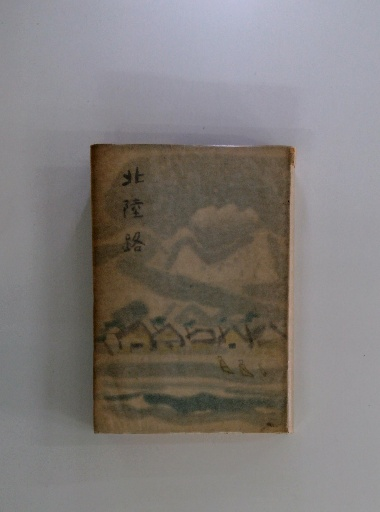 北陸路